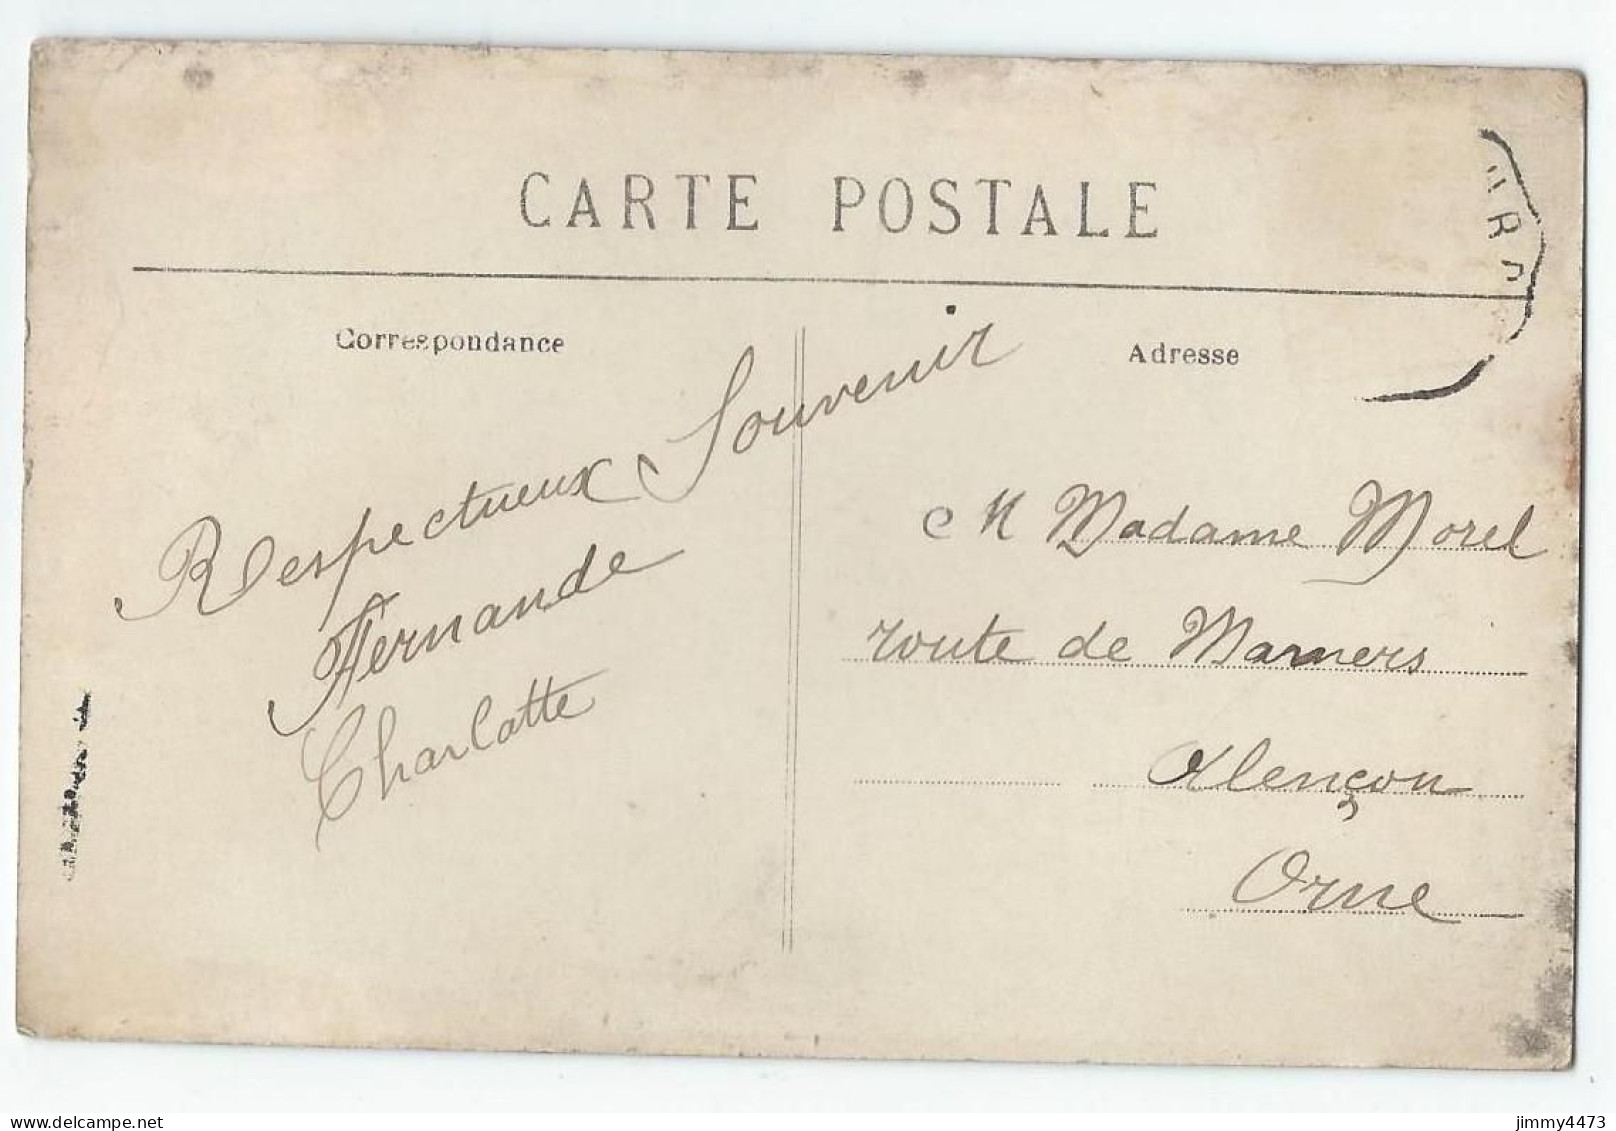 CARTE POSTALE
Correspondance
Adresse
Respectueux Souvenir
Fernande
Charlotte
M Madame Morel
route de Mamers
Alençon
Orne
jimmy4473